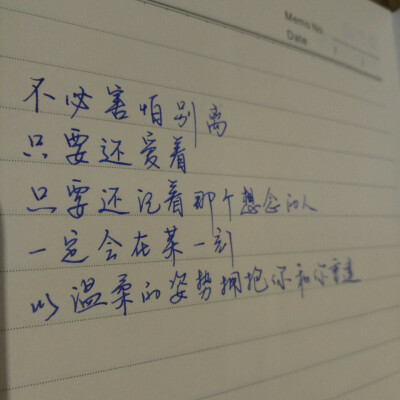 Memo No.
Date / /
不必害怕别离
只要还爱着
只要还记着那个想念的人
一定会在某一刻
以温柔的姿势拥抱你和你重逢